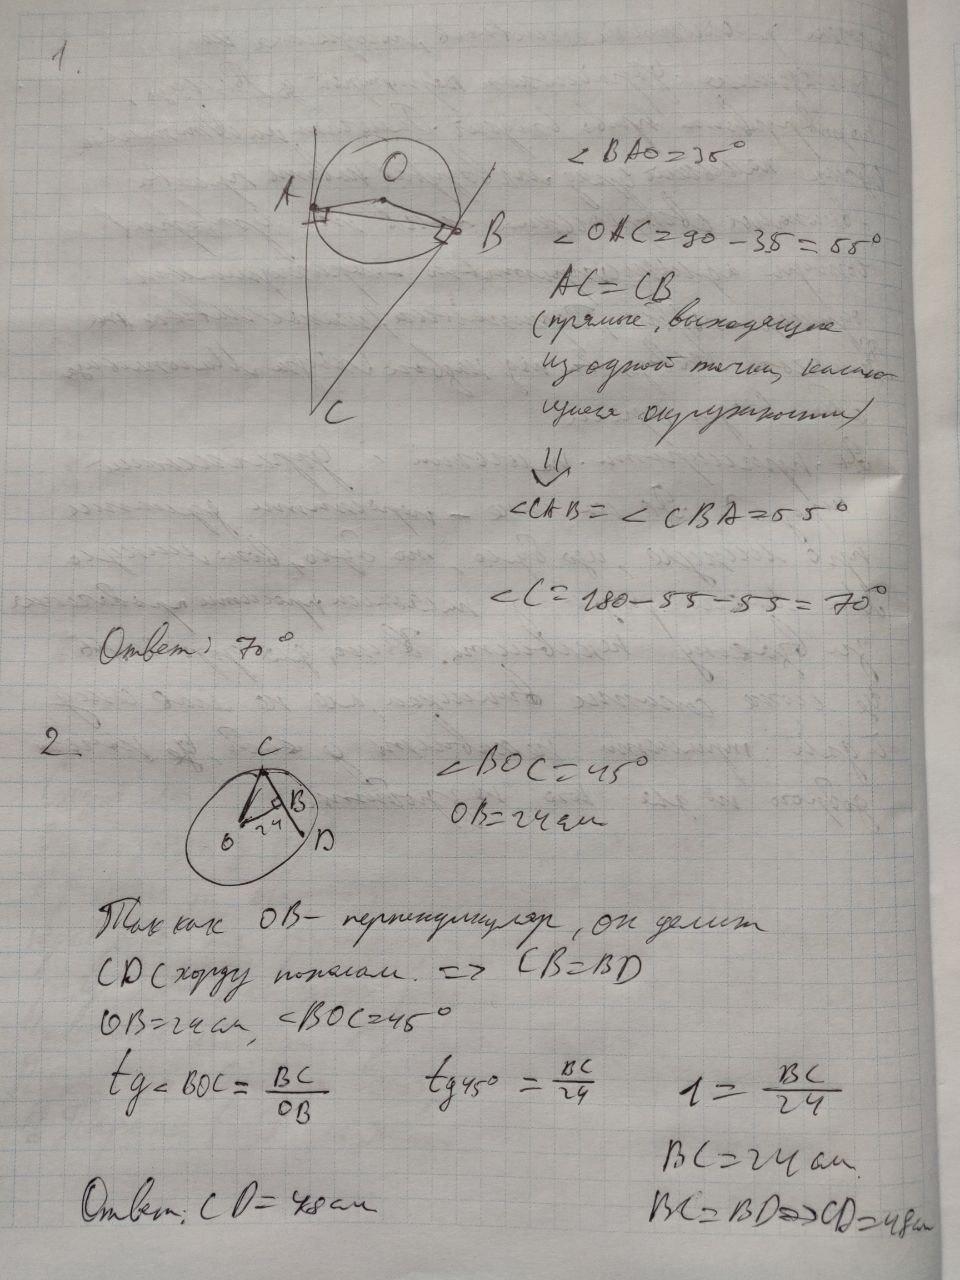 1.
A
O
B
C
∠BAO=35°
∠OAC=90-35=55°
AC=CB
(прямые, выходящие
из одной точки, касаю-
щиеся окружности)
⇓
∠CAB=∠CBA=55°
∠C=180-55-55=70°
Ответ: 70°
2.
C
B
24
O
D
∠BOC=45°
OB=24см
Так как OB- перпендикуляр, он делит
CD(хорду пополам. => CB=BD
OB=24см, ∠BOC=45°
tg∠BOC= BC/OB tg45° = BC/24 1= BC/24
BC=24см
Ответ: CD=48см
BC=BD=>CD=48см